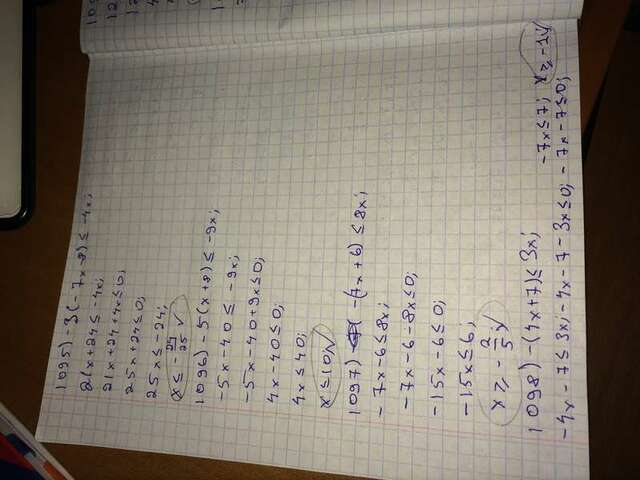 1095) -3(-7x-8) ≤ -4x;
21x+24 ≤ -4x;
21x+24+4x≤0;
25x+24≤0;
25x≤-24;
x≤ -24/25 √
1096) -5(x+8) ≤ -9x;
-5x-40 ≤ -9x;
-5x-40+9x≤0;
4x-40≤0;
4x≤40;
x≤10√
1097) -(7x+6) ≤ 8x;
-7x-6≤8x;
-7x-6-8x≤0;
-15x-6≤0;
-15x≤6;
x≥ -2/5 √
1098) -(4x+7)≤3x;
-4x-7≤3x; -4x-7-3x≤0; -7x-7≤0;
-7x≤7; x≥-1√